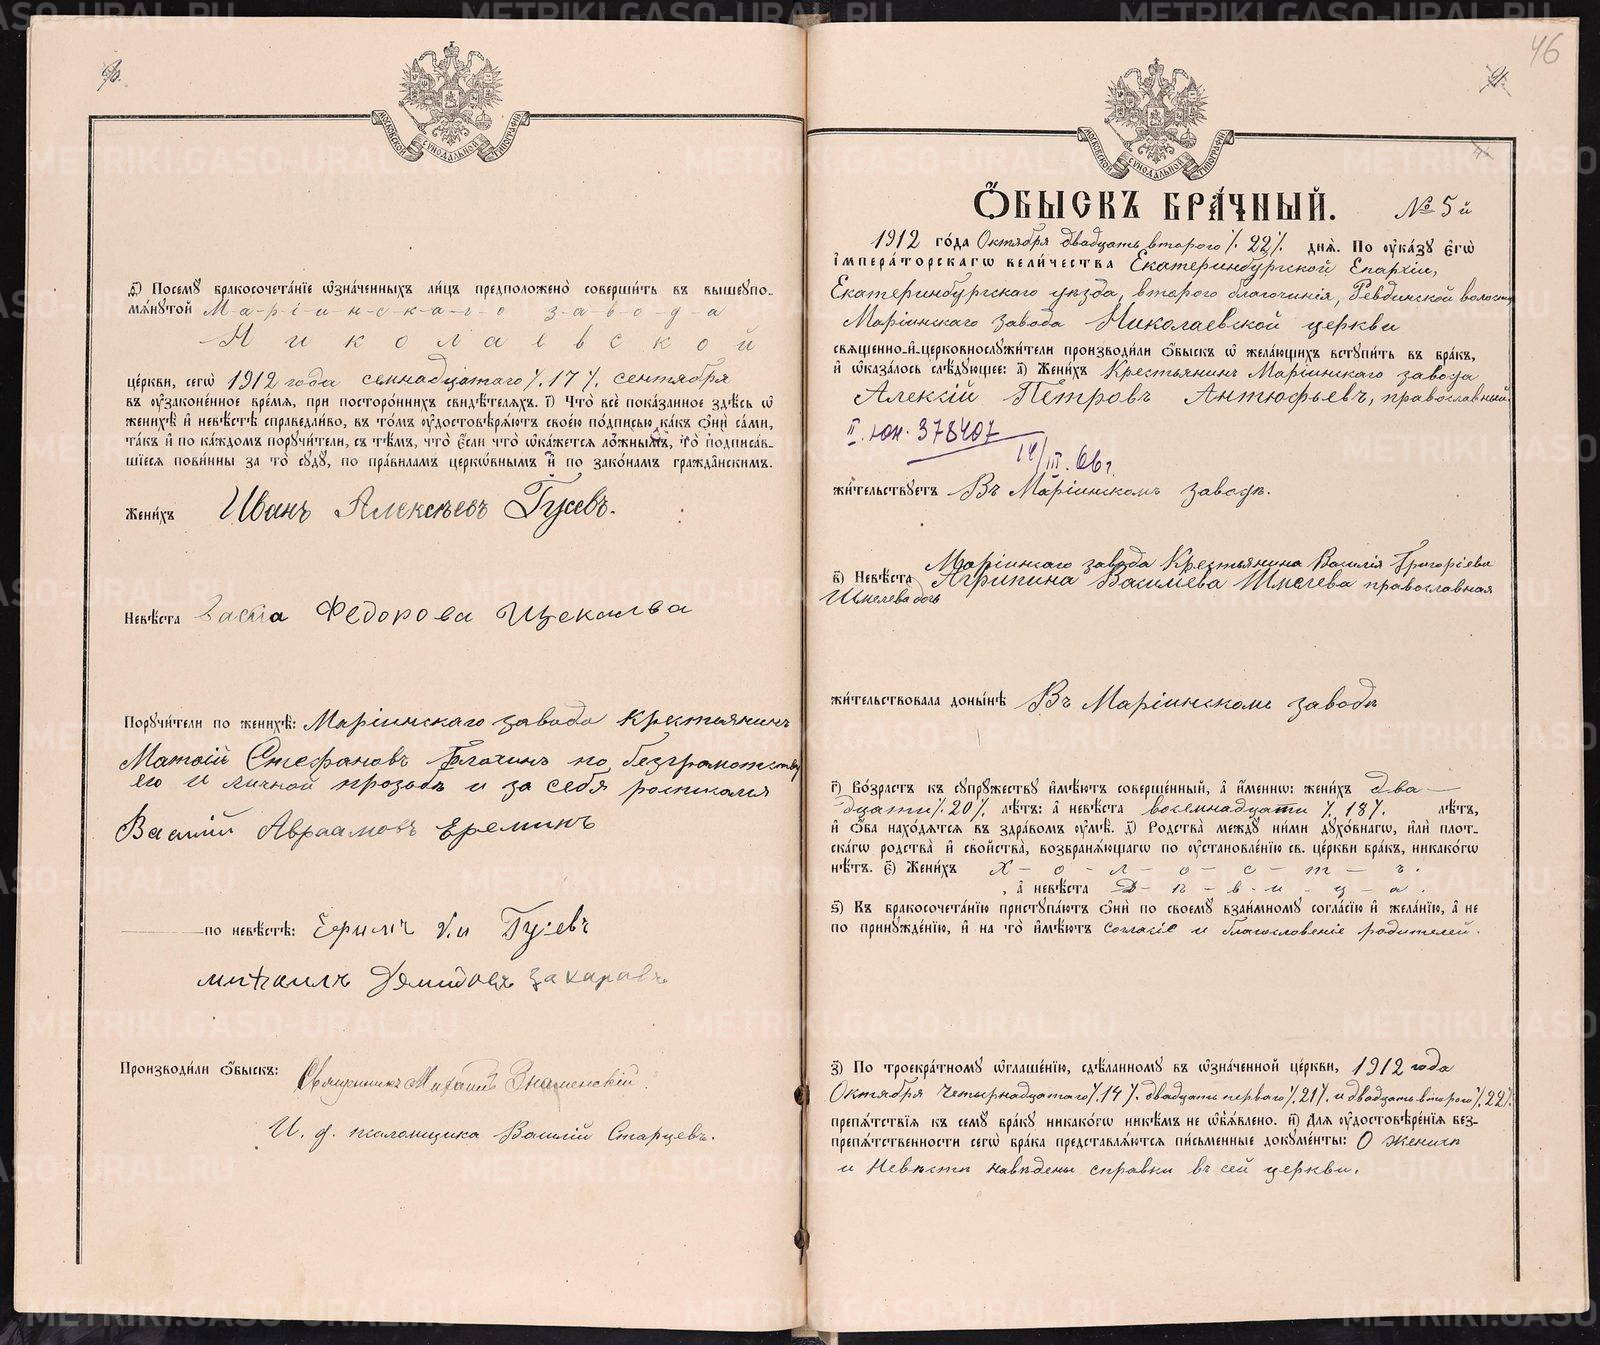 МОСКОВСКОЙ СѴНОДАЛЬНОЙ ТИПОГРАФІИ
Ѕ҃) Посему бракосочетаніе ѡзначенныхъ лицъ предположено совершить въ вышеупо-
мѧнутой М-а-р-і-и-н-с-к-а-г-о з-а-в-о-д-а
Н и к о л а е в с к о й
церкви, сегѡ 1912 года семнадцатаго /.17/. сентября
въ оузаконенное времѧ, при постороннихъ свидѣтелѧхъ. і҃) Что все показанное здѣсь ѡ
женихѣ и невѣстѣ справедливо, въ томъ оудостовѣрѧютъ своею подписью какъ ѻни сами,
такъ и по каждомъ поручители, съ тѣмъ, что если что ѡкажетсѧ ложнымъ, то подписав-
шіесѧ повинны за то суду, по правиламъ церкѡвнымъ и по законамъ гражданскимъ.
Женихъ Иванъ Алексѣевъ Гусевъ.
Невѣста Федорова Щекалва
Поручители по женихѣ: Маріинскаго завода крестьянинъ
Матѳій Стефановъ по безграмотству
его и личной прозьбѣ и за себя росписался
Василій Авраамовъ Ереминъ
по невѣстѣ: Гусевъ
михаилъ Демидовъ Захаровъ
Производили ѻбыскъ: Священникъ Михаилъ Знаменскій.
И. д. псаломщика Василій Старцевъ.
46
МОСКОВСКОЙ СѴНОДАЛЬНОЙ ТИПОГРАФІИ
ѺБЫСКЪ БРАЧНЫЙ. № 5й
1912 года Октября двадцать второго /. 22 /. днѧ. По оуказу егѡ
императорскагѡ величества Екатеринбургской Епархіи,
Екатеринбургскаго уѣзда, второго благочинія, Ревдинской волости
Маріинскаго завода Николаевской церкви
свѧщенно-и-церковнослужители производили ѻбыскъ ѡ желающихъ вступить въ бракъ,
и ѡказалось слѣдующее: а҃) Женихъ Крестьянинъ Маріинскаго завода
Алексій Петровъ Антюфьевъ, православный.
II. юн. 378407
14/III. 66г.
жительствуетъ Въ Маріинскомъ заводѣ.
Маріинскаго завода Крестьянина Василія Григоріева
в҃) Невѣста Агрипина Васильева Шмелева православная
Шмелева дочь
жительствовала донынѣ Въ Маріинскомъ заводѣ
г҃) Возрастъ къ супружеству имѣютъ совершенный, а именнѡ: женихъ два-
дцати /.20/. лѣтъ: а невѣста восемнадцати /.18/. лѣтъ,
и ѻба находѧтсѧ въ здравомъ оумѣ. д҃) Родства между ними духовнагѡ, или плот-
скагѡ родства и свойства, возбранѧющагѡ по оустановленію св. церкви бракъ, никакогѡ
нѣтъ. е҃) Женихъ х-о-л-о-с-т-ъ.
, а невѣста Д-ѣ-в-и-ц-а.
ѕ҃) Къ бракосочетанію приступаютъ ѻни по своему взаимному согласію и желанію, а не
по принужденію, и на то имѣютъ согласіе и благословеніе родителей.
з҃) По троекратному ѡглашенію, сдѣланному въ ѡзначенной церкви, 1912 года
Октября Четырнадцатаго /.14/. двадцать перваго /.21/. и двадцать второго /.22/.
препѧтствіѧ къ сему браку никакогѡ никѣмъ не ѡбъѧвлено. и҃) Для оудостовѣреніѧ без-
препѧтственности сегѡ брака представлѧютсѧ письменные документы: О женихѣ
и Невѣстѣ наведены справки въ сей церкви.
METRIKI.GASO-URAL.RU